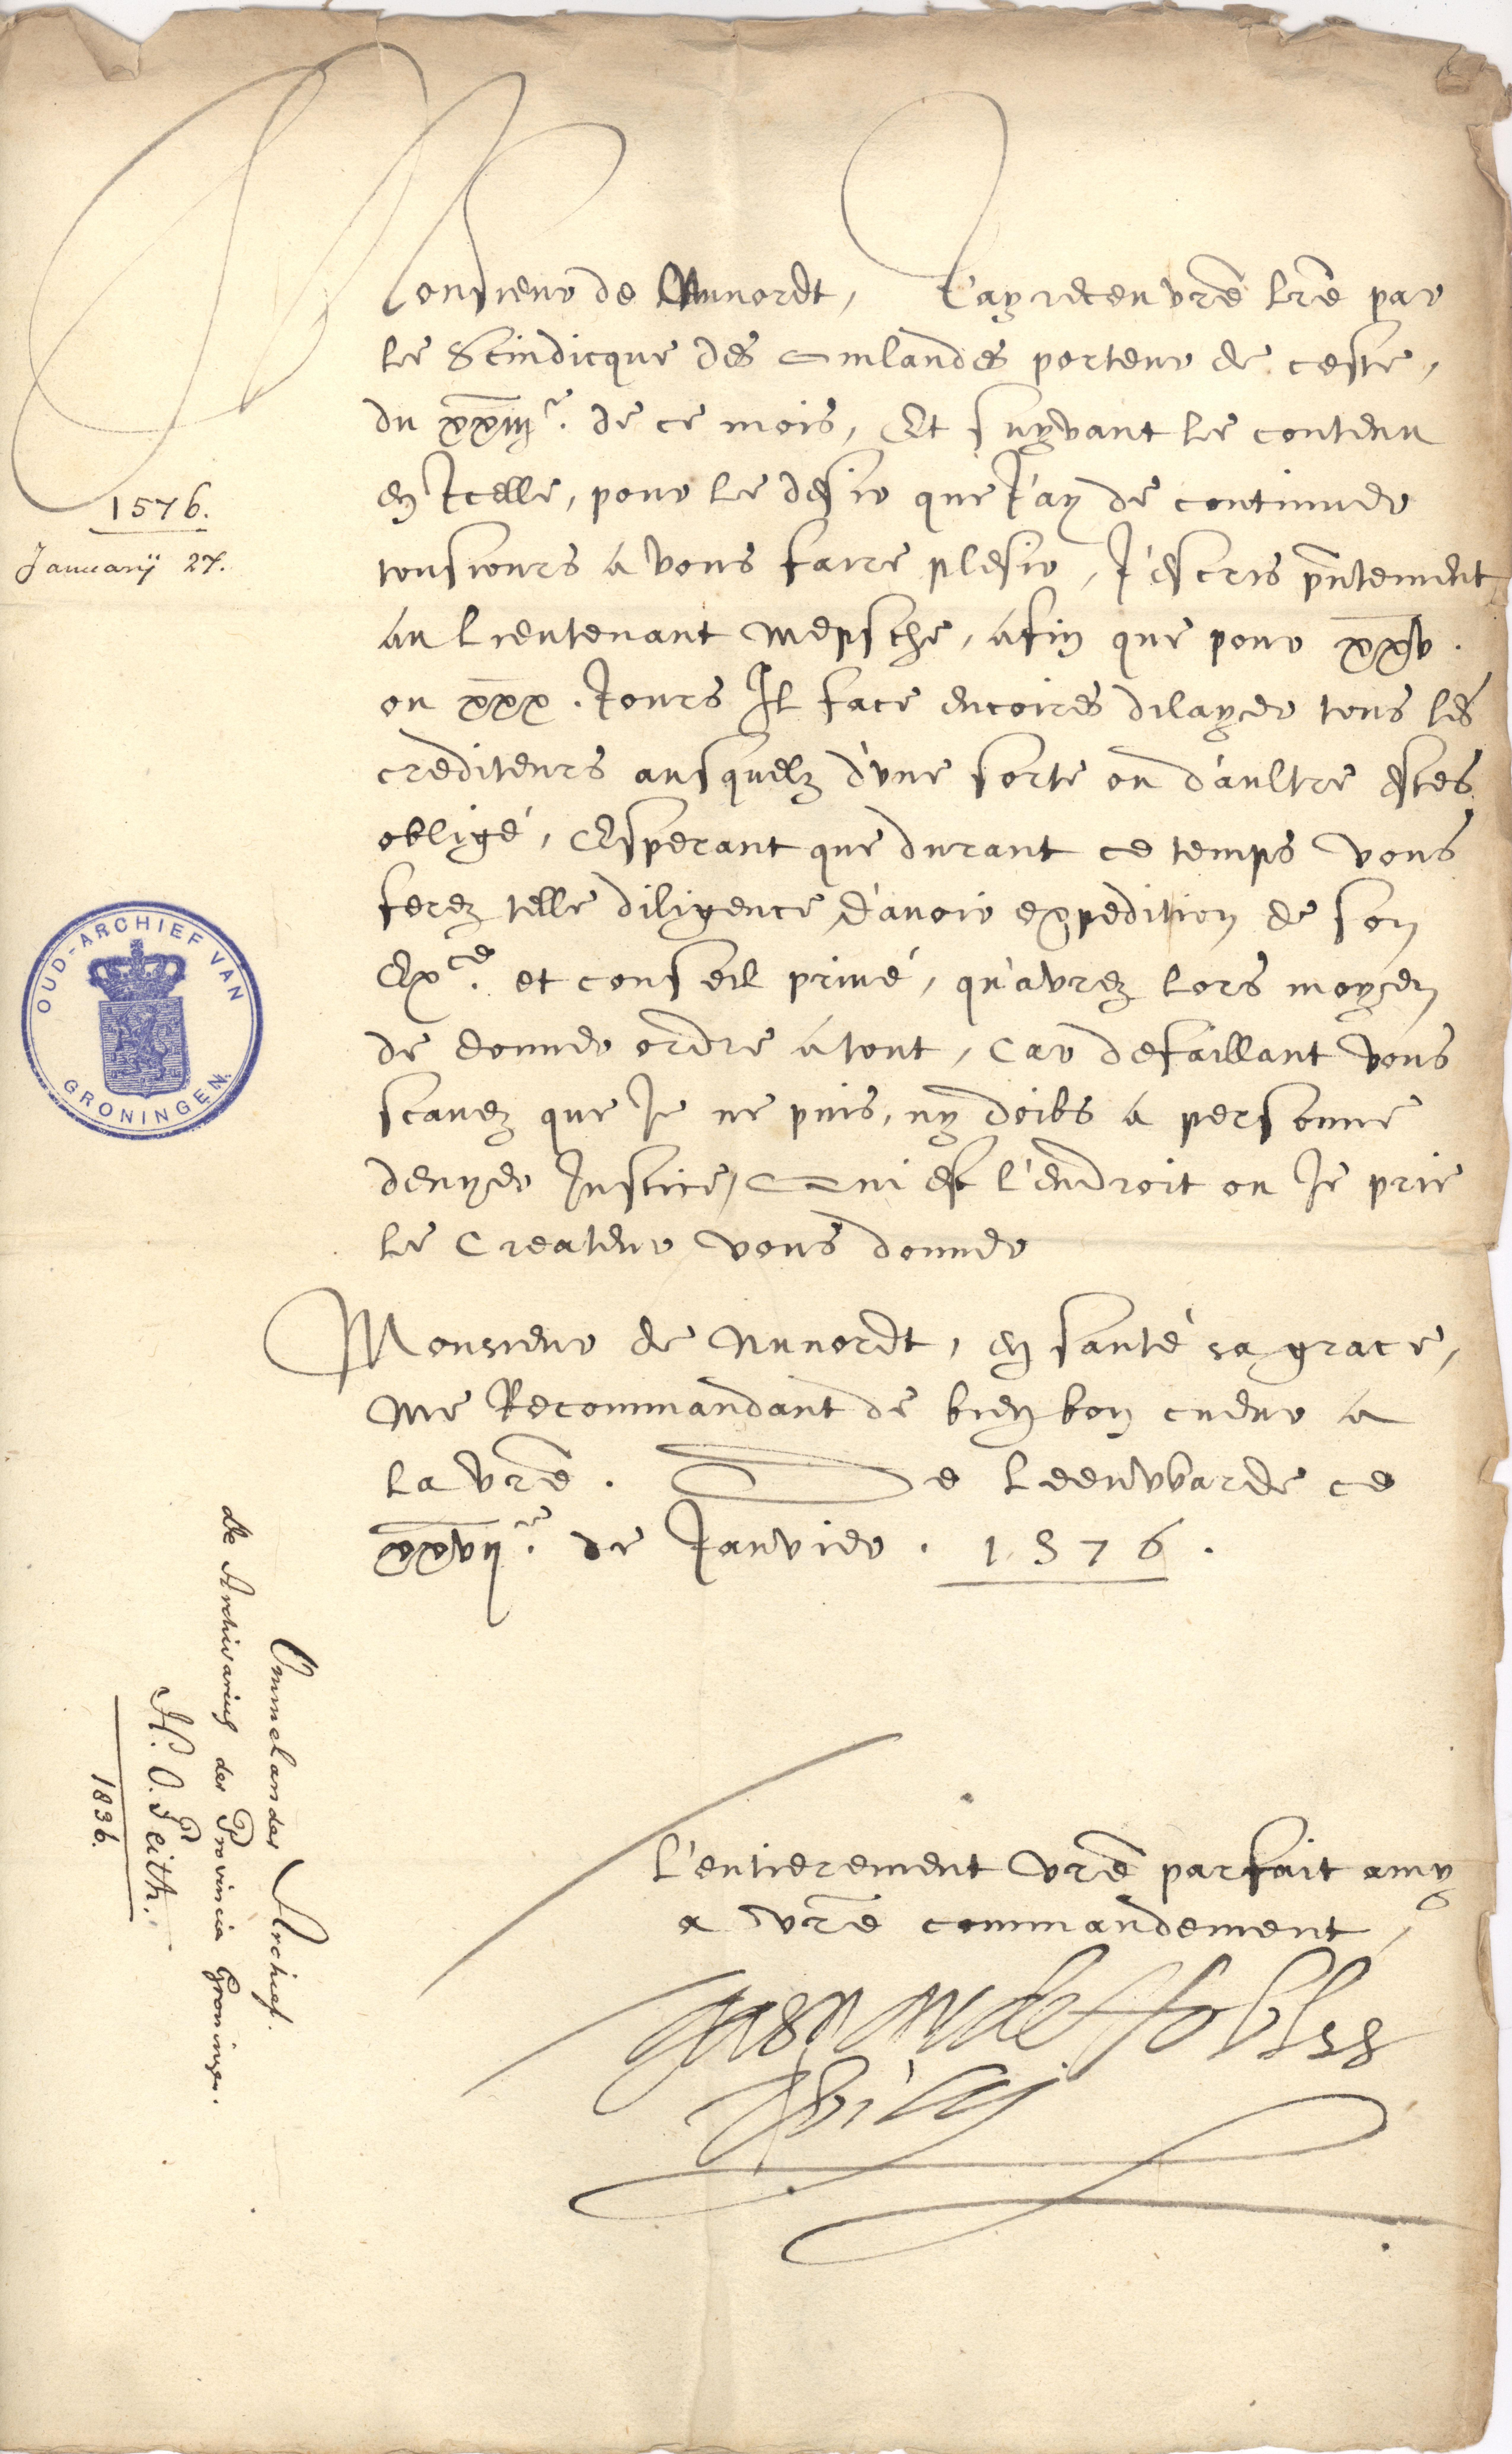 Monsieur de Nunordt, J'ay receu vrē lrē par
le Scindicque des Omlandes porteur de ceste,
du xxiiijᵉ. de ce mois, Et suyvant le contenu
en Icelle, pour le desir que J'ay de continuer
tousiours a vous faire plesir, J'escris pn̄tement
au Lieutenant Mepsche, afin que pour xxv.
ou xxx. Jours Il face encoires dilayer tous les
crediteurs ausquelz d'une sorte ou d'aultre estes
obligé, Esperant que durant ce temps vous
ferez telle diligence d'avoir expedition de son
Exᶜᵉ. et conseil privé, qu'avrez lors moyen
de donner ordre a tout, Car defaillant vous
scavez que Je ne puis, ny doibs a personne
denyer Justice, Qui est l'endroit ou Je prie
le Createur vous donner
Monsieur de Nunordt, en santé sa grace,
me Recommandant de bien bon cueur a
la vrē. De Leeuvvarde ce
xxvijᵉ. de Janvier. 1576.
L'entierement vrē parfait amy
a vrē commandement,
Gaspar de Robles
Billy
1576.
Januarij 27.
OUD-ARCHIEF VAN
GRONINGEN.
Ommelander Archief.
de Archivarius der Provincie Groningen.
H. O. Feith.
1836.